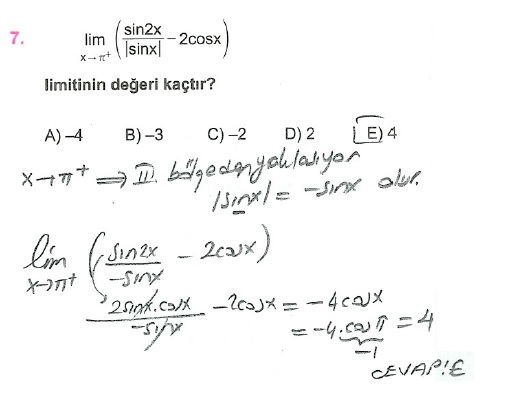 7. lim x→π⁺ (sin2x/|sinx| − 2cosx)
limitinin değeri kaçtır?
A) −4 B) −3 C) −2 D) 2 E) 4
x→π⁺ ⟹ III. bölgeden yaklaşıyor
|sinx| = −sinx olur.
lim x→π⁺ (sin2x/−sinx − 2cosx)
2sinx.cosx/−sinx − 2cosx = −4cosx
= −4.cosπ = 4
−1
CEVAP: E